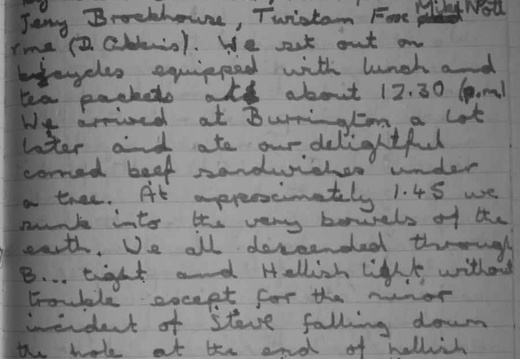 Jerry Brockhouse, Tristam Fose Mike Nott
me (D. Gibbins). We set out on
bicycles equipped with lunch and
tea packets at about 12.30 (p.m)
We arrived at Burrington a lot
later and ate our delightful
corned beef sandwiches under
a tree. At approximately 1.45 we
sunk into the very bowels of the
earth. We all descended through
B... tight and Hellish light without
trouble except for the minor
incident of Steve falling down
the hole at the end of hellish